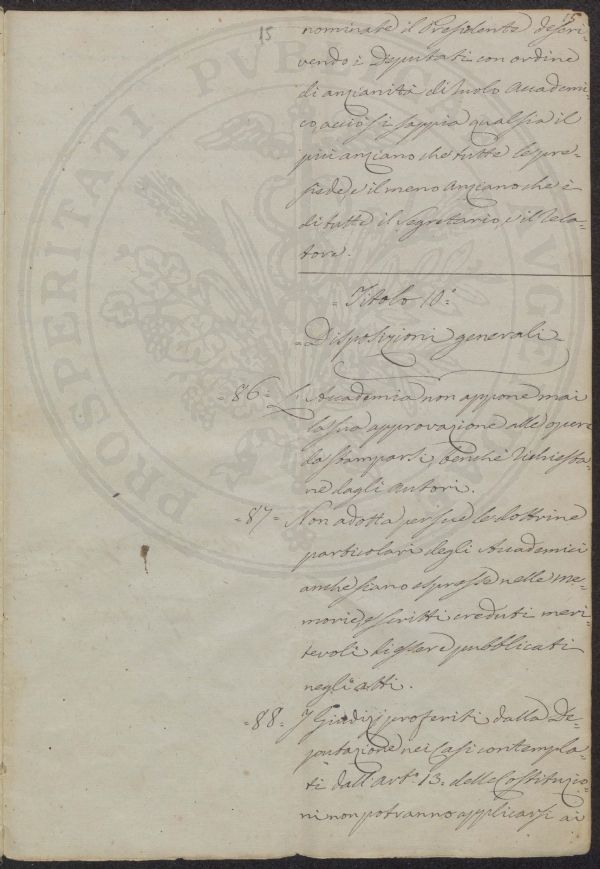 15
15
nominate il Presidente descri-
vendo i Deputati con ordine
di anzianità di ruolo Accademi-
co, acciò si sappia qual sia il
più anziano che tutte le pre-
siede e il meno Anziano che è
di tutte il Segretario, e il Rela-
tore.
= Titolo 10.°
= Disposizioni generali =
= 86 = L'Accademia non appone mai
la sua approvazione alle opere
da stamparsi, benchè richiesta-
ne dagli autori.
= 87 = Non adotta per sue le dottrine
particolari degli Accademici
anche siano espresse nelle me-
morie, e scritti creduti meri-
tevoli di essere pubblicati
negli atti.
= 88 = I Giudizj proferiti dalla De-
putazione nei Casi contempla-
ti dall'art.° 13. delle Costituzio-
ni non potranno applicarsi ai
PROSPERITATI PVBLICAE